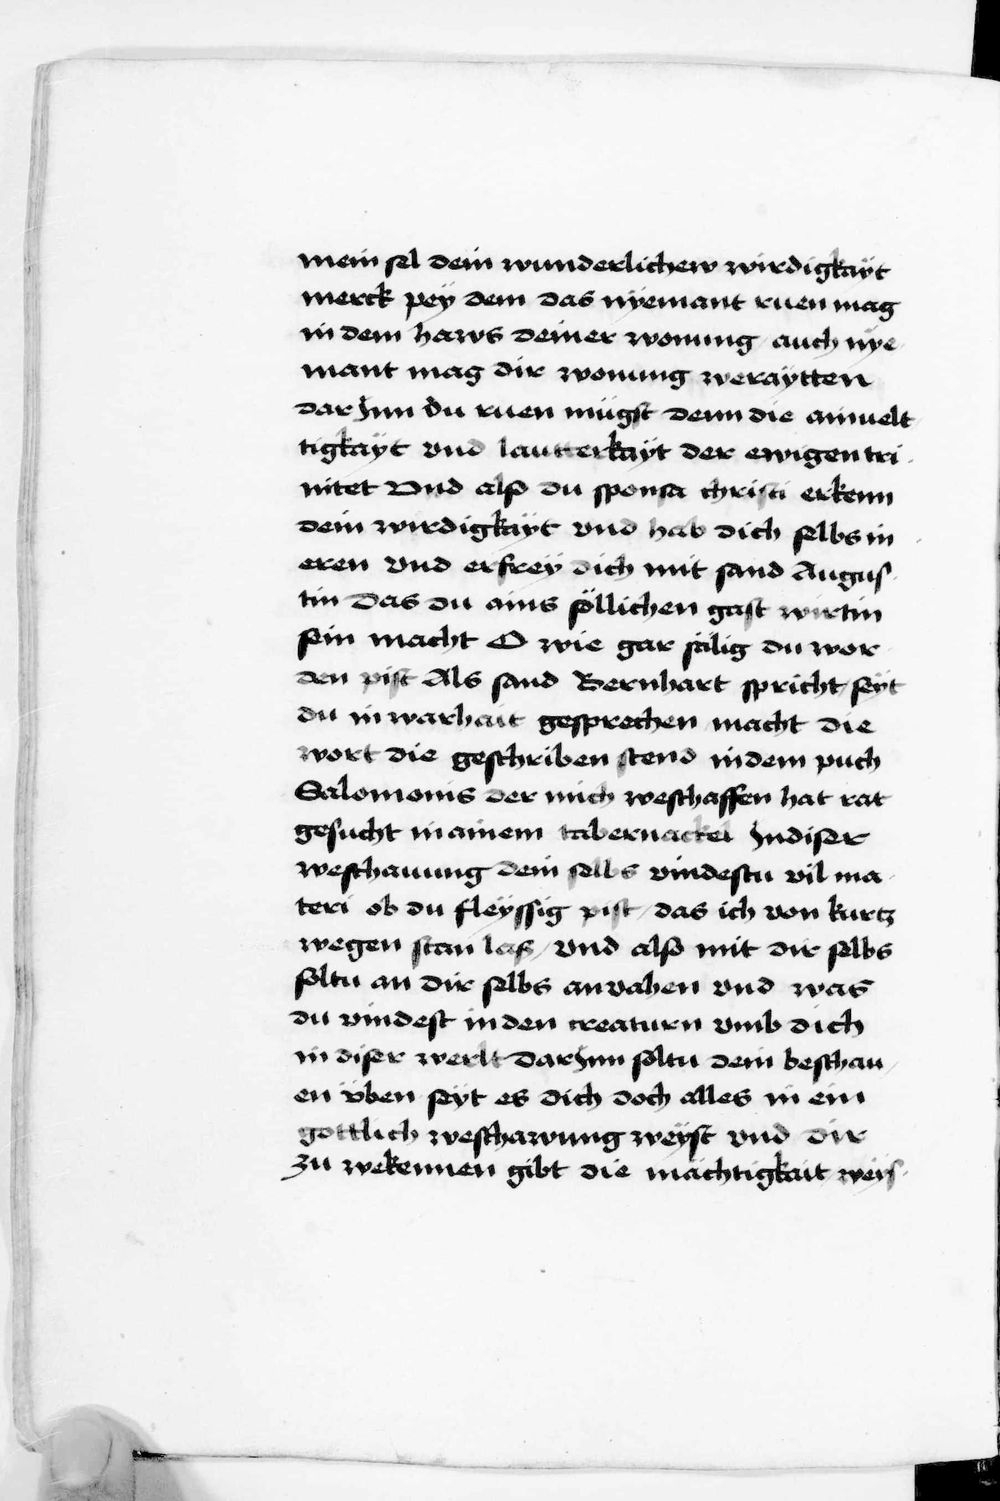 mein sel dein wunderlichew wirdigkaÿt
merck peÿ dem das nÿemant ruen mag
in dem haws deiner wonung auch nÿe
mant mag dir wonung weraÿtten
dar Jnn du ruen mügst denn die ainuelt
tigkäyt vnd lautterkäyt der ewigen tri
nitet Vnd also du sponsa christi erkenn
dein wirdigkäyt vnd hab dich selbs in
eren Vnd erfreÿ dich mit sand Augus
tin Das du ains söllichen gast wirtin
sein macht O wie gar sälig du wor
den pist Als sand Bernhart spricht / seÿt
du in warhait gesprechen macht die
wort die geschriben stend indem puch
Salomonis der mich weschaffen hat rat
gesucht in ainem tabernackel Jndiser
weschauung dein selbs vindestu vil ma
teri ob du fleÿssig pist / das ich von kurtz
wegen stan las / Vnd also mit dir selbs
soltu an dir selbs anvahen vnd was
du vindest inden creaturn vmb dich
in diser werlt Dar Jnn soltu dein beschau
en üben seÿt es dich doch alles in ein
gottlich weschawung weÿst vnd dir
zu wekennen gibt die mächtigkait weÿs